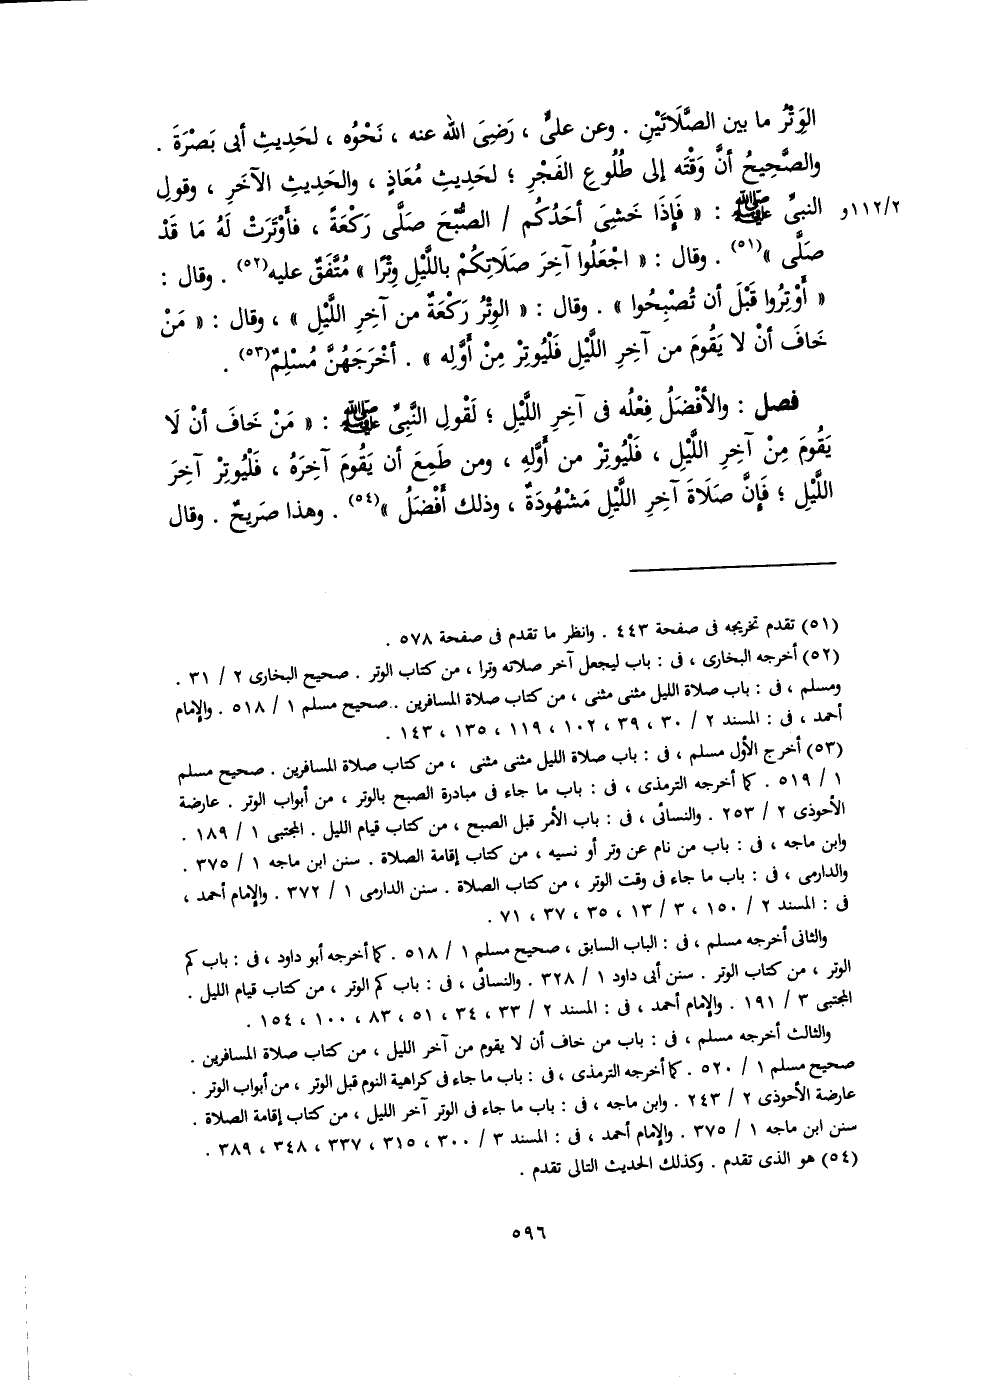 الوَتْرُ ما بين الصَّلَاتَيْنِ . وعن علىٍّ ، رَضِىَ الله عنه ، نَحْوُه ، لحَدِيثِ أبى بَصْرَةَ .
والصَّحِيحُ أنَّ وَقْتَه إلى طُلُوعِ الفَجْرِ ؛ لحَدِيثِ مُعَاذٍ ، والحَدِيثِ الآخَرِ ، وقولِ
١١٢/٢و النبىِّ ﷺ : « فَإذَا خَشِىَ أحَدُكُم / الصُّبْحَ صَلَّى رَكْعَةً ، فَأوْتَرَتْ لَهُ مَا قَدْ
صَلَّى »(٥١) . وقال : « اجْعَلُوا آخِرَ صَلَاتِكُمْ باللَّيْلِ وِتْرًا » مُتَّفَقٌ عليه(٥٢) . وقال :
« أَوْتِرُوا قَبْلَ أن تُصْبِحُوا » . وقال : « الوِتْرُ رَكْعَةٌ من آخِرِ اللَّيْلِ » ، وقال : « مَنْ
خَافَ أنْ لا يَقُومَ من آخِرِ اللَّيْلِ فَلْيُوتِرْ مِنْ أَوَّلِه » . أخْرَجَهُنَّ مُسْلِمٌ(٥٣) .
فصل : والأفْضَلُ فِعْلُه فى آخِرِ اللَّيْلِ ؛ لقَوْلِ النَّبِىِّ ﷺ : « مَنْ خَافَ أنْ لَا
يَقُومَ مِنْ آخِرِ اللَّيْلِ ، فَلْيُوتِرْ من أَوَّلِهِ ، ومن طَمِعَ أن يَقُومَ آخِرَهُ ، فَلْيُوتِرْ آخِرَ
اللَّيْلِ ؛ فَإنَّ صَلَاةَ آخِرِ اللَّيْلِ مَشْهُودَةٌ ، وذلك أَفْضَلُ »(٥٤) . وهذا صَرِيحٌ . وقال
(٥١) تقدم تخريجه فى صفحة ٤٤٣ . وانظر ما تقدم فى صفحة ٥٧٨ .
(٥٢) أخرجه البخارى ، فى : باب ليجعل آخر صلاته وترا ، من كتاب الوتر . صحيح البخارى ٢ / ٣١ .
ومسلم ، فى : باب صلاة الليل مثنى مثنى ، من كتاب صلاة المسافرين .. صحيح مسلم ١ / ٥١٨ . والإمام
أحمد ، فى : المسند ٢ / ٣٠ ، ٣٩ ، ١٠٢ ، ١١٩ ، ١٣٥ ، ١٤٣ .
(٥٣) أخرج الأول مسلم ، فى : باب صلاة الليل مثنى مثنى ، من كتاب صلاة المسافرين . صحيح مسلم
١ / ٥١٩ . كما أخرجه الترمذى ، فى : باب ما جاء فى مبادرة الصبح بالوتر ، من أبواب الوتر . عارضة
الأحوذى ٢ / ٢٥٣ . والنسائى ، فى : باب الأمر قبل الصبح ، من كتاب قيام الليل . المجتبى ١ / ١٨٩ .
وابن ماجه ، فى : باب من نام عن وتر أو نسيه ، من كتاب إقامة الصلاة . سنن ابن ماجه ١ / ٣٧٥ .
والدارمى ، فى : باب ما جاء فى وقت الوتر ، من كتاب الصلاة . سنن الدارمى ١ / ٣٧٢ . والإمام أحمد ،
فى : المسند ٢ / ١٥٠ ، ٣ / ١٣ ، ٣٥ ، ٣٧ ، ٧١ .
والثانى أخرجه مسلم ، فى : الباب السابق ، صحيح مسلم ١ / ٥١٨ . كما أخرجه أبو داود ، فى : باب كم
الوتر ، من كتاب الوتر . سنن أبى داود ١ / ٣٢٨ . والنسائى ، فى : باب كم الوتر ، من كتاب قيام الليل .
المجتبى ٣ / ١٩١ . والإمام أحمد ، فى : المسند ٢ / ٣٣ ، ٣٤ ، ٥١ ، ٨٣ ، ١٠٠ ، ١٥٤ .
والثالث أخرجه مسلم ، فى : باب من خاف أن لا يقوم من آخر الليل ، من كتاب صلاة المسافرين .
صحيح مسلم ١ / ٥٢٠ . كما أخرجه الترمذى ، فى : باب ما جاء فى كراهية النوم قبل الوتر ، من أبواب الوتر .
عارضة الأحوذى ٢ / ٢٤٣ . وابن ماجه ، فى : باب ما جاء فى الوتر آخر الليل ، من كتاب إقامة الصلاة .
سنن ابن ماجه ١ / ٣٧٥ . والإمام أحمد ، فى : المسند ٣ / ٣٠٠ ، ٣١٥ ، ٣٣٧ ، ٣٤٨ ، ٣٨٩ .
(٥٤) هو الذى تقدم . وكذلك الحديث التالى تقدم .
٥٩٦